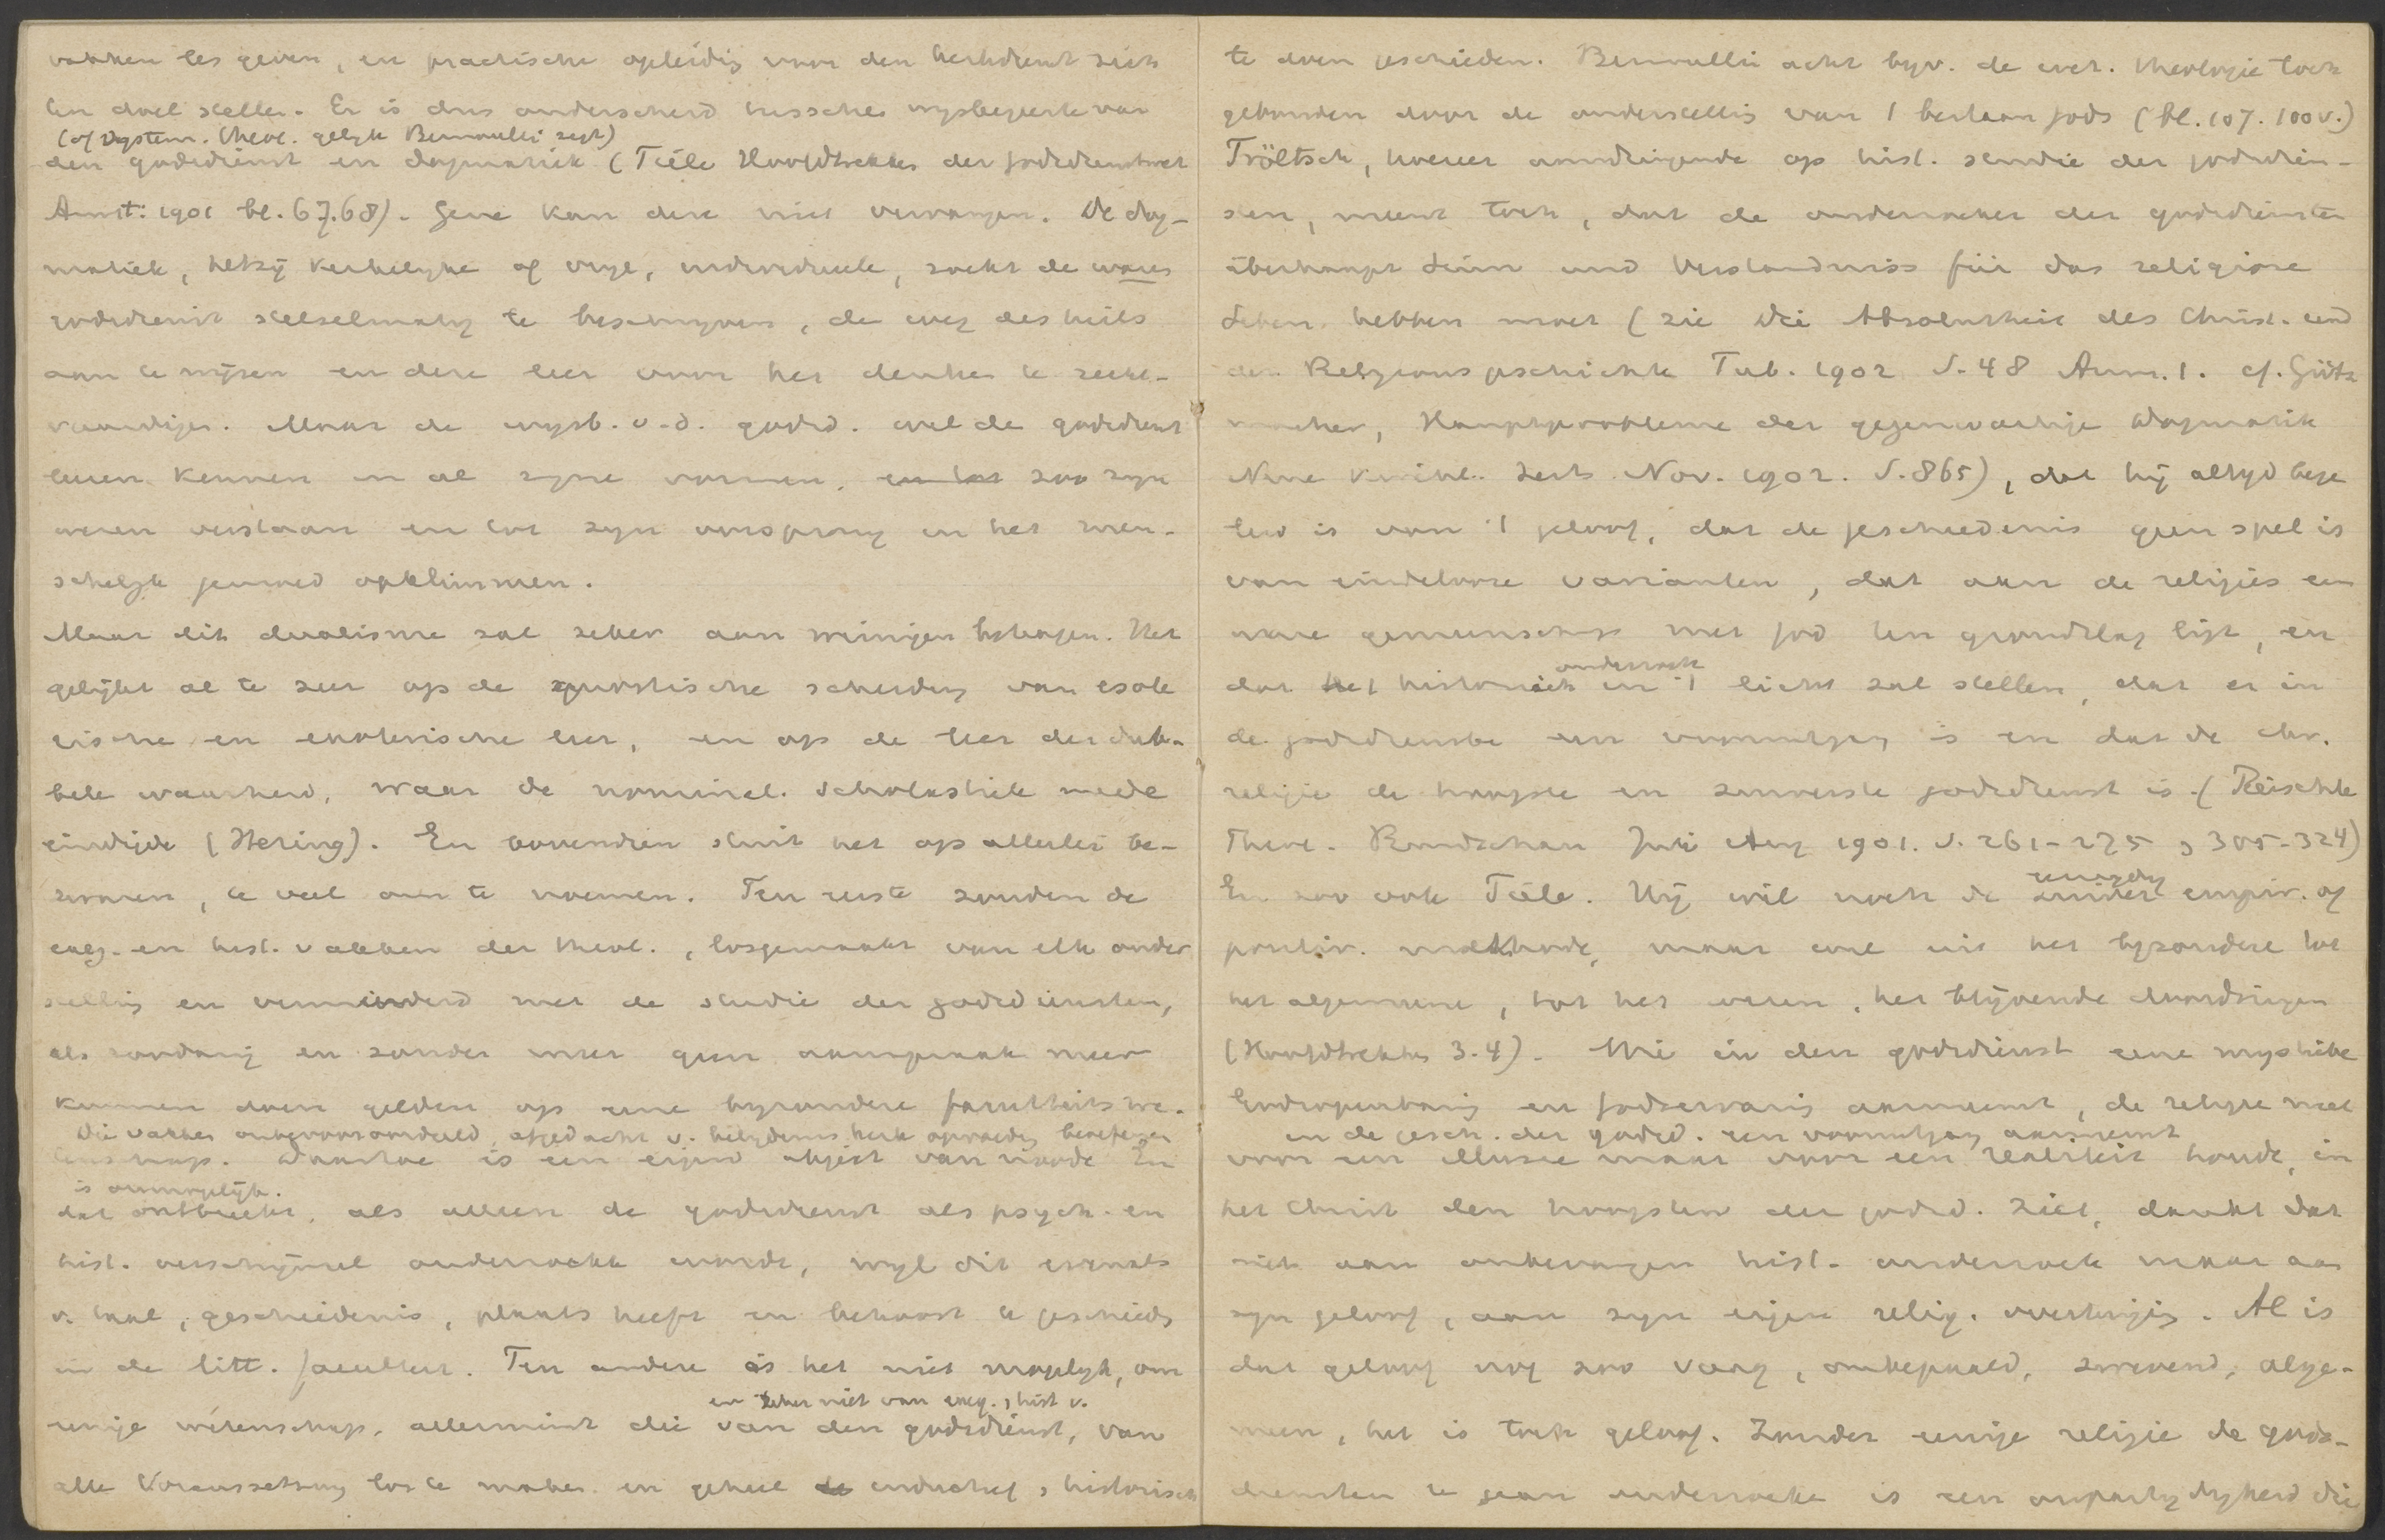 vakken les geven, en practische opleiding voor den kerkdienst zich
ten doel stellen. Er is dus onderscheid tusschen wijsbegeerte van
(of system. theol. gelijk Bernoulli zegt)
den godsdienst en dogmatiek (Tiele Hoofdtrekken der godsdienstwet
Amst: 1901 bl. 67.68). Gene kan deze niet vervangen. De dog-
matiek, hetzij kerkelijke of vrije, individueele, zoekt de ware
godsdienst stelselmatig te beschrijven, de weg des heils
aan te wijzen en deze leer voor het denken te recht-
vaardigen. Maar de wijsb. v. d. godsd. wil de godsdienst
leeren kennen in al zijne vormen, zoo zijn
wezen verstaan en tot zijn oorsprong in het men-
schelijk gemoed opklimmen.
Maar dit dualisme zal zeker aan weinigen behagen. Het
gelijkt al te zeer op de gnostische scheiding van esote
rische en exoterische leer, en op de leer der dub-
bele waarheid, waar de nominal. scholastiek mede
eindigde (Hering). En bovendien stuit het op allerlei be-
zwaren, te veel om te noemen. Ten eerste zouden de
exeg. en hist. vakken der theol., losgemaakt van elk onder
stelling en verminderd met de studie der godsdiensten,
als zoodanig en zonder meer geen aanspraak meer
kunnen doen gelden op eene bijzondere faculteitswe-
Die vakken onbevooroordeeld, afgedacht v. belijdenis kerk opvoeding beoefenen
tenschap. Daartoe is een eigen object van noode En
is onmogelijk.
dat ontbreekt, als alleen de godsdienst als psych. en
hist. verschijnsel onderzocht wordt, wijl dit evenals
v. taal, geschiedenis, plaats heeft en behoort te geschieden
in de litt. faculteit. Ten andere is het niet mogelijk, om
en zeker niet van exeg., hist v.
eenige wetenschap, allerminst die van den godsdienst, van
alle Voraussetzung los te maken en geheel inductief, historisch
te doen geschieden. Bernoulli acht bijv. de wet. theologie toch
gebonden door de onderstelling van 't bestaan Gods (bl. 107. 100v.)
Tröltsch, hoezeer aandringende op hist. studie der godsdien-
sten, meent toch, dat de onderzoeker der godsdiensten
überhaupt Sinn und Verständniss für das religiöse
Leben hebben moet (zie Die Absolutheit des Christ. und
der Religionsgeschichte Tub. 1902 S. 48 Anm. 1. cf. Grütz
macher, Hauptprobleme der gegenwärtige Dogmatik
Neue Kirchl. Zeits. Nov. 1902. S. 865), dat hij altijd bege
leid is van 't geloof, dat de geschiedenis geen spel is
van eindelooze varianten, dat aan de religies een
ware gemeenschap met God ten grondslag ligt, en
onderzoek
dat het historisch in 't licht zal stellen, dat er in
de godsdiensten een vooruitgang is en dat de chr.
religie de hoogste en zuiverste godsdienst is. (Reischle
Theol. Rundschau Juli Aug 1901. S. 261-275, 305-324)
eenzijdig
En zoo ook Tiele. Hij wil noch de zuiver empir. of
positiv. methode, maar wil uit het bijzondere tot
het algemeene, tot het wezen, het blijvende doordringen
(Hoofdtrekken 3.4). Wie in den godsdienst eene mystieke
Godsopenbaring en Godservaring aanneemt, de religie niet
in de gesch. der godsd. een vooruitgang aanneemt
voor een illusie maar voor een realiteit houdt, in
het Christ den hoogsten der godsd. ziet, dankt dat
niet aan onbevangen hist. onderzoek maar aan
zijn geloof, aan zijn eigen relig. overtuiging. Al is
dat geloof nog zoo vaag, onbepaald, zwevend, alge-
meen, het is toch geloof. Zonder eenige religie de gods-
diensten te gaan onderzoeken is een onpartijdigheid die